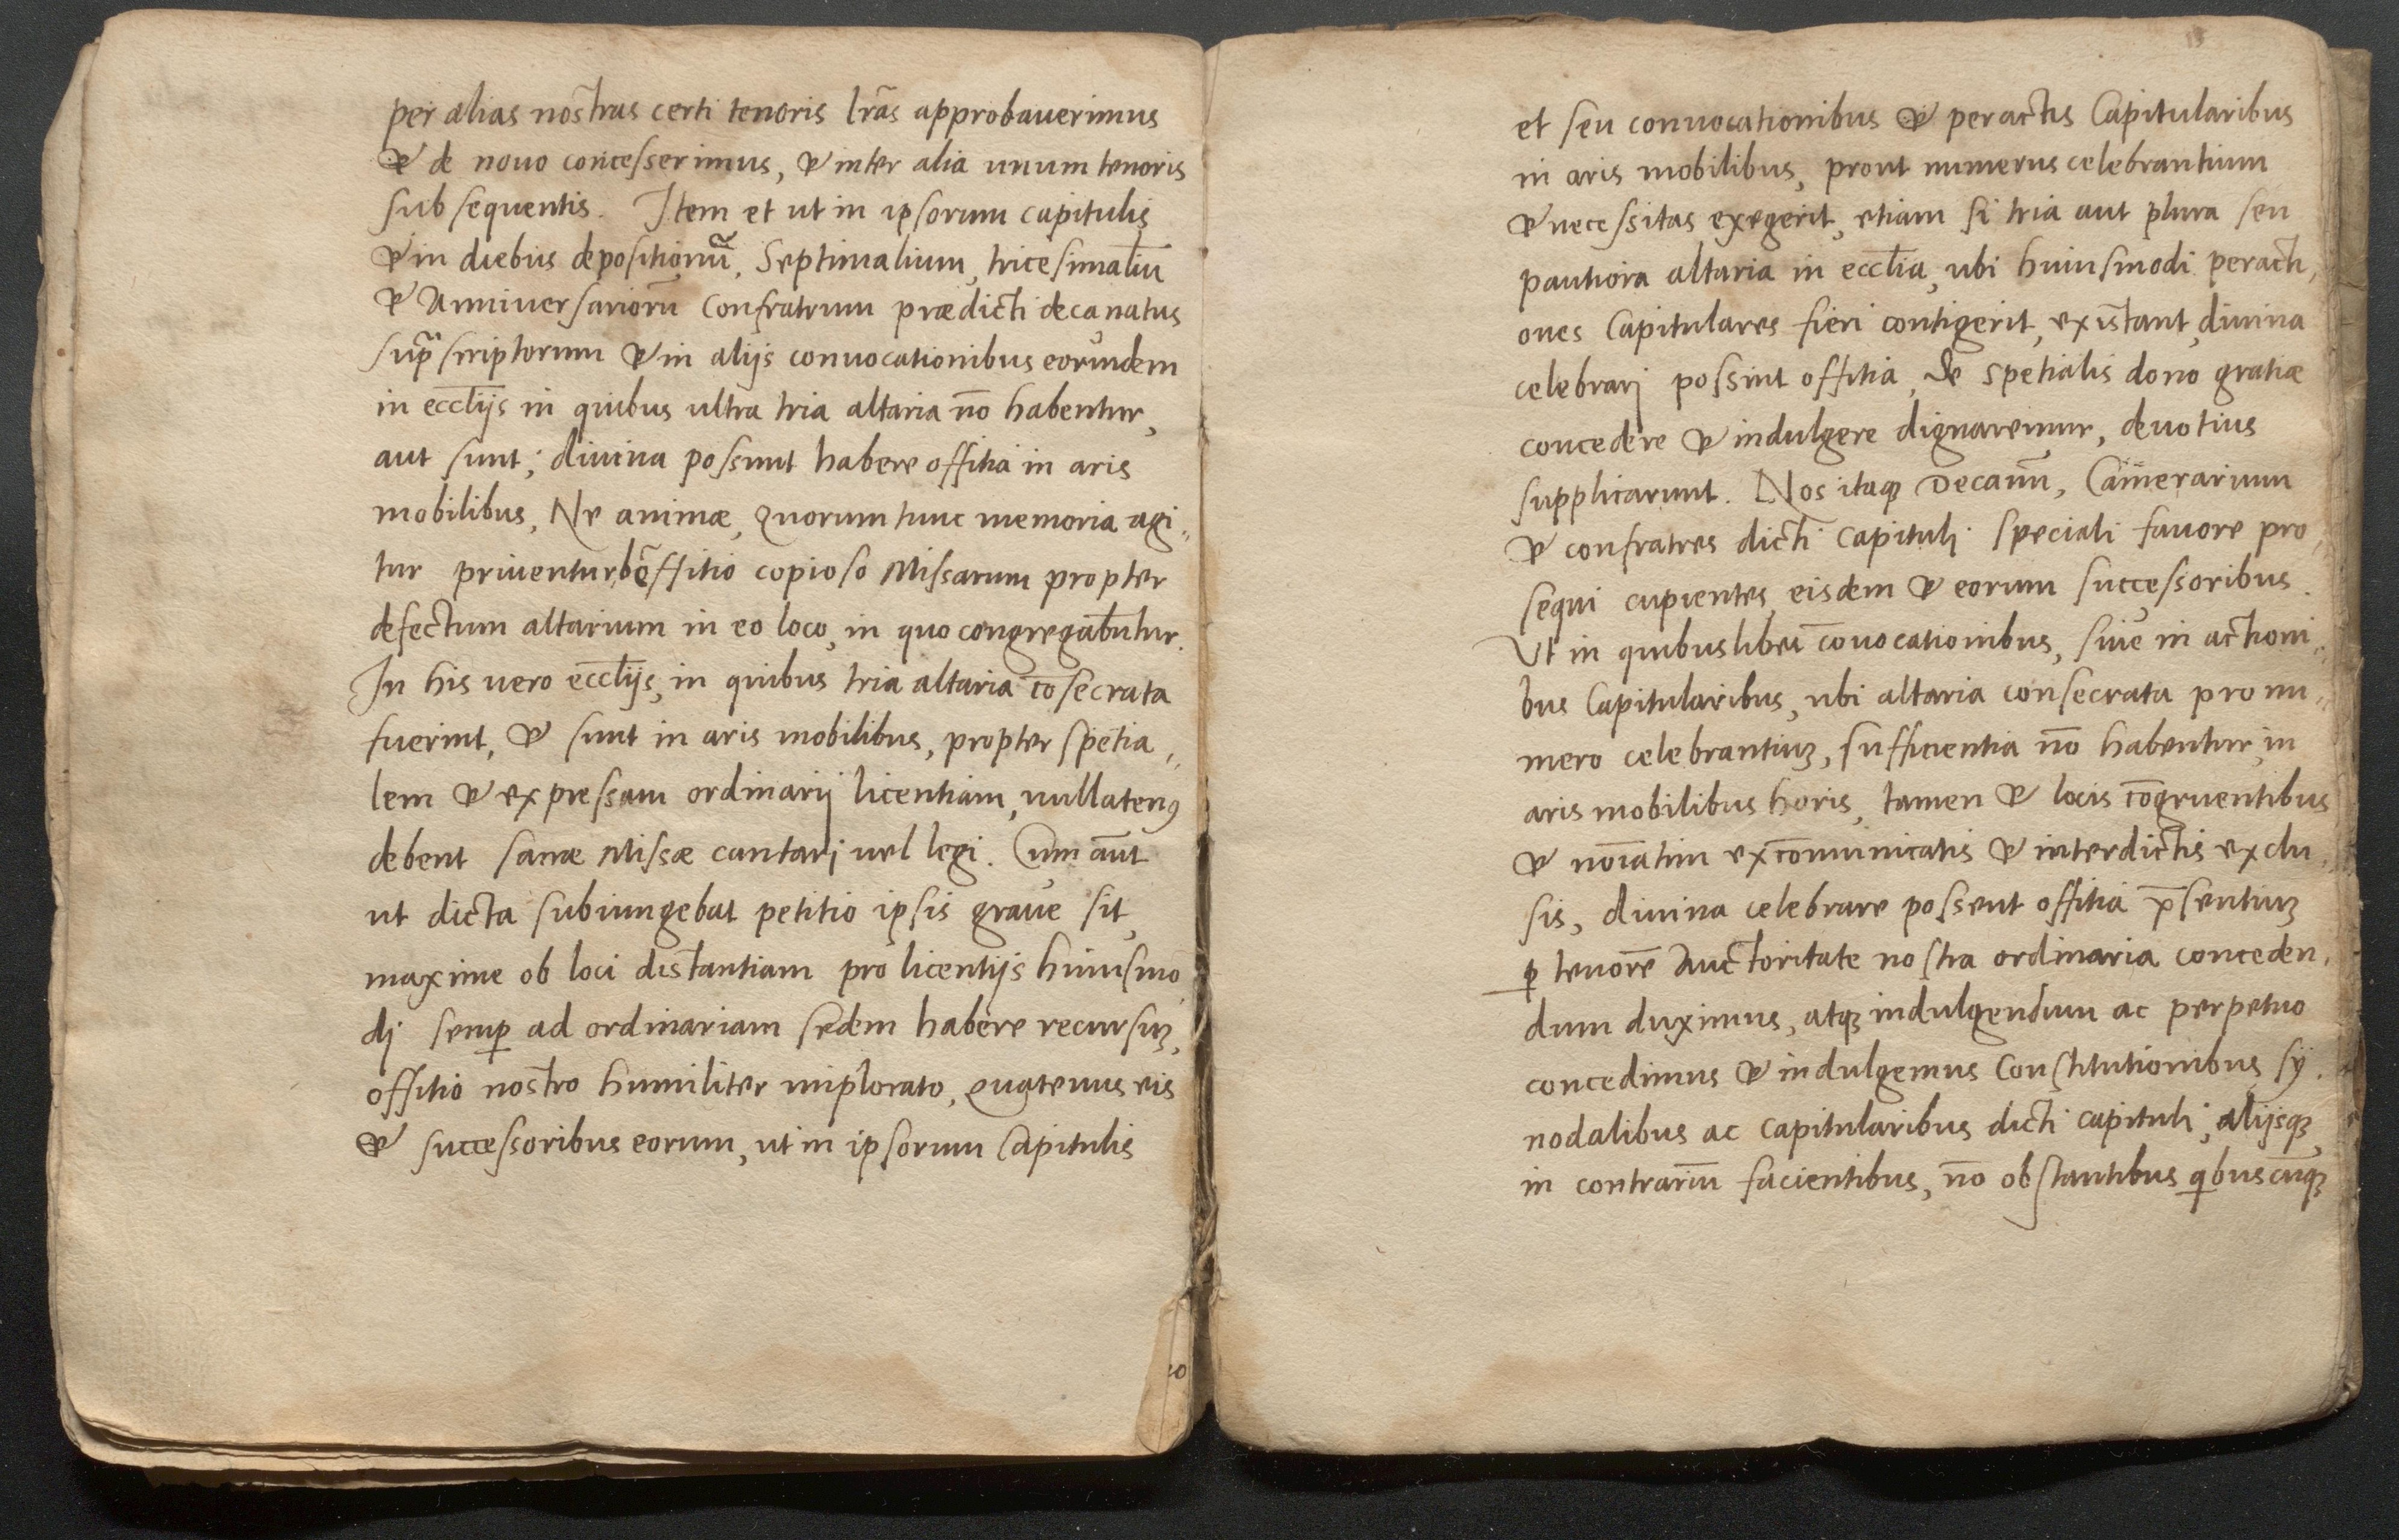 per alias nostras certi tenoris lr̃as approbauerimus
& de nouo concesserimus, & inter alia unum tenoris
subsequentis. Item et ut in ipsorum capitulis
& in diebus depositionũ, Septimalium, tricesimaliũ
& Anniuersariorũ Confratrum prædicti decanatus
sup̃scriptorum & in alijs conuocationibus eorundem
in eccl̃ijs in quibus ultra tria altaria nõ habentur,
aut sunt; diuina possunt habere offitia in aris
mobilibus, Ne animæ, Quorum tunc memoria agi„
tur priuentur bõ offitio copioso Missarum propter
defectum altarium in eo loco, in quo congregabuntur.
In his uero eccl̃ijs, in quibus tria altaria cõsecrata
fuerint, & sunt in aris mobilibus, propter spetia„
lem & expressam ordinarij licentiam, nullatenꝰ
debent sacræ Missæ cantarj uel legi. Cum aũt
ut dicta subiungebat petitio ipsis graue sit,
maxime ob loci distantiam pro licentijs huiusmo
dj semꝑ ad ordinariam sedem habere recursuꝫ,
offitio nostro humiliter implorato, Quatenus eis
& successoribus eorum, ut in ipsorum Capitulis
13
et seu conuocationibus & peractis Capitularibus
in aris mobilibus, prout numerus celebrantium
& necessitas exegerit, etiam si tria aut plura seu
pautiora altaria in eccl̃ia, ubi huiusmodi peracti,
ones Capitulares fieri contigerit, existant, diuina
celebrarj possint offitia, De spetialis dono gratiæ
concedere & indulgere dignaremur, deuotius
supplicarunt. Nos itaqꝫ Decanũ, Camerarium
& confratres dicti Capitulj speciali fauore pro,
sequi cupientes, eisdem & eorum successoribus.
Ut in quibuslibet cõuocationibus, siue in actioni„
bus Capitularibus, ubi altaria consecrata pro nu„
mero celebrantiuꝫ, sufficientia nõ habentur, in
aris mobilibus horis, tamen & locis cõgruentibus
& noĩatim excõmunicatis & interdictis exclu„
sis, diuina celebrare possent offitia p̃sentiuꝫ
ꝑ tenorẽ Auctoritate nostra ordinaria conceden,
dum duximus, atqꝫ indulgendum ac perpetuo
concedimus & indulgemus Constitutionibus sy.
nodalibus ac capitularibus dicti capituli, alijsqꝫ
in contrariũ facientibus, nõ obstantibus qbuscũqꝫ